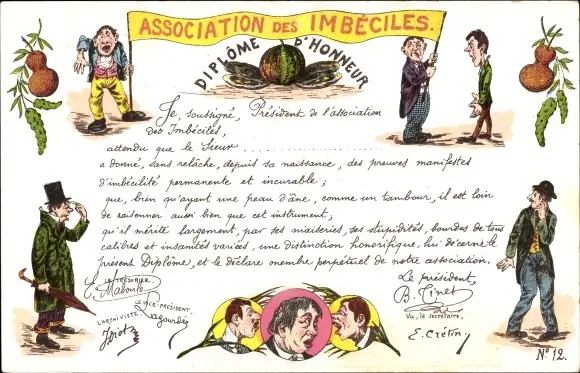 ASSOCIATION DES IMBÉCILES.
DIPLÔME D'HONNEUR
Je, soussigné, Président de l'association
des Imbéciles,
attendu que le Sieur ..............................
a donné, sans relâche, depuis sa naissance, des preuves manifestes
d'imbécilité permanente et incurable;
que, bien qu'ayant une peau d'âne, comme un tambour, il est loin
de raisonner aussi bien que cet instrument;
qu'il mérite largement, par ses niaiseries, ses stupidités, bourdes de tous
calibres et insanités variées, une distinction honorifique, lui décerne le
présent Diplôme, et le déclare membre perpétuel de notre association.
LE TRÉSORIER
Maboule
LE VICE-PRÉSIDENT,
Lagourde
L'ARCHIVISTE,
Le président,
B. Tinet
Vu, le secrétaire,
E. Crétin
No 12.